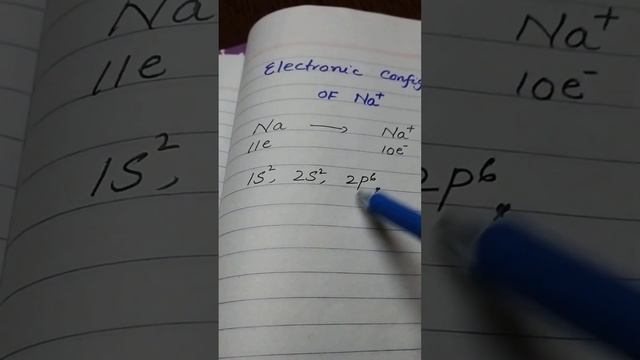 Electronic Config
OF Na⁺
Na ⟶ Na⁺
11e 10e⁻
1S², 2S², 2p⁶